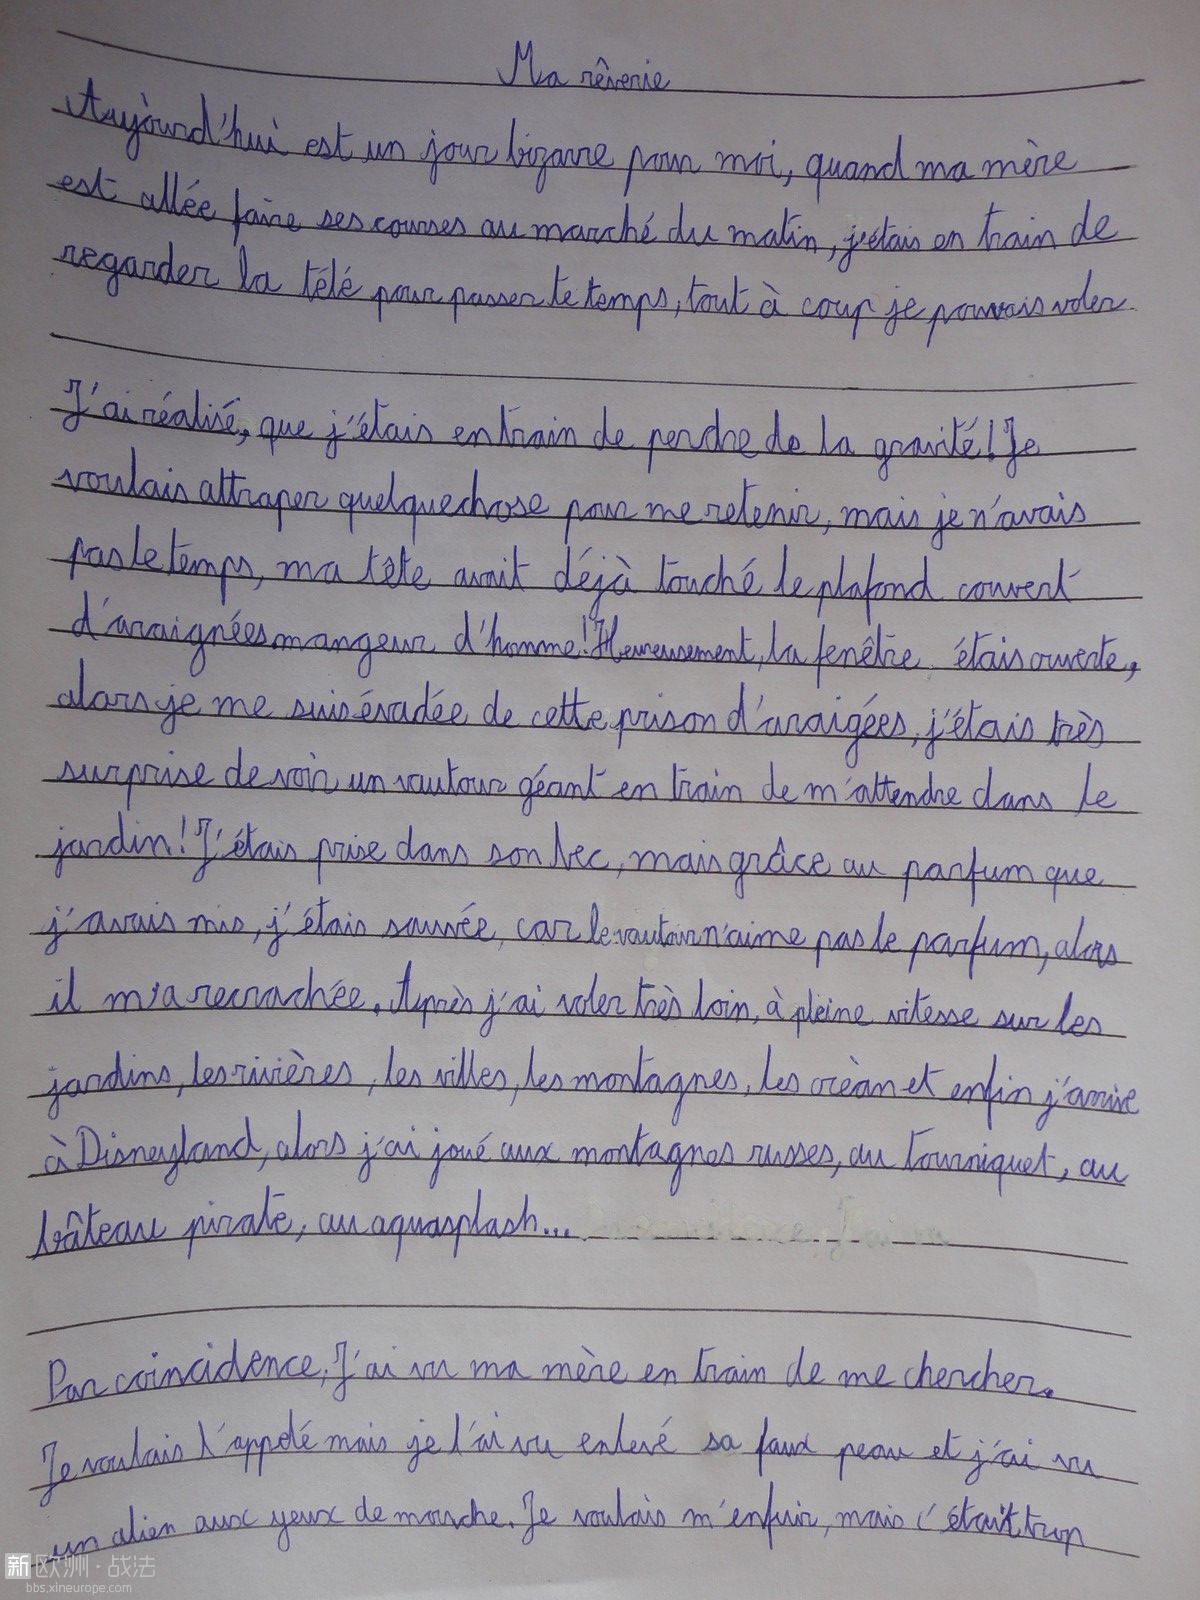 Ma rêverie
Aujourd'hui est un jour bizarre pour moi, quand ma mère
est allée faire ses courses au marché du matin, j'étais en train de
regarder la télé pour passer le temps, tout à coup je pouvais voler.
J'ai réalisé, que j'étais en train de perdre de la gravité! Je
voulais attraper quelque chose pour me retenir, mais je n'avais
pas le temps, ma tête avait déjà touché le plafond couvert
d'araignées mangeur d'homme! Heureusement, la fenêtre étais ouverte,
alors je me suis évadée de cette prison d'araigées, j'étais très
surprise de voir un vautour géant en train de m'attendre dans le
jardin! J'étais prise dans son bec, mais grâce au parfum que
j'avais mis, j'étais sauvée, car le vautour n'aime pas le parfum, alors
il m'a recrachée. Après j'ai voler très loin, à pleine vitesse sur les
jardins, les rivières, les villes, les montagnes, les océan et enfin j'arrive
à Disneyland, alors j'ai joué aux montagnes russes, au tourniquet, au
bâteau pirate, au aquasplash...
Par coincidence, J'ai vu ma mère en train de me chercher.
Je voulais l'appelé mais je l'ai vu enlevé sa faux peau et j'ai vu
un alien aux yeux de mouche. Je voulais m'enfuir, mais c'était trop
新欧洲·战法
bbs.xineurope.com